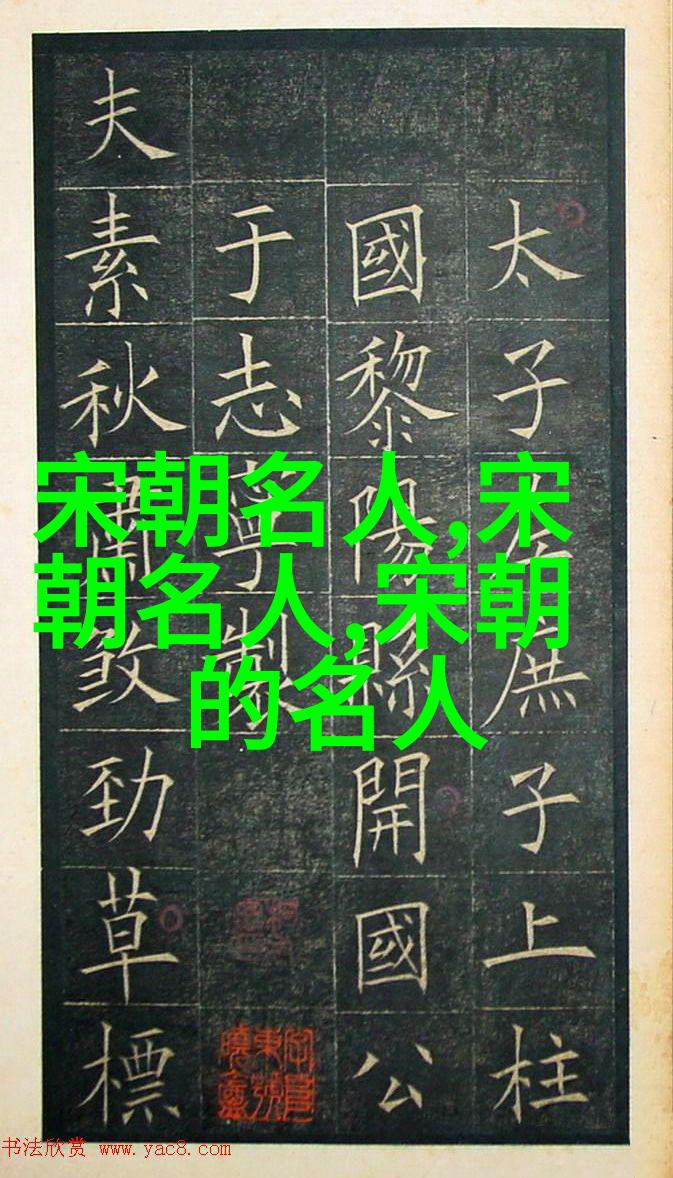 太子左庶子上柱
國黎陽縣開國公
于志寧製
夫素秋肅煞勁草標
宋朝名人,宋
朝名人,宋朝
的名人
书法欣赏 www.yac8.com